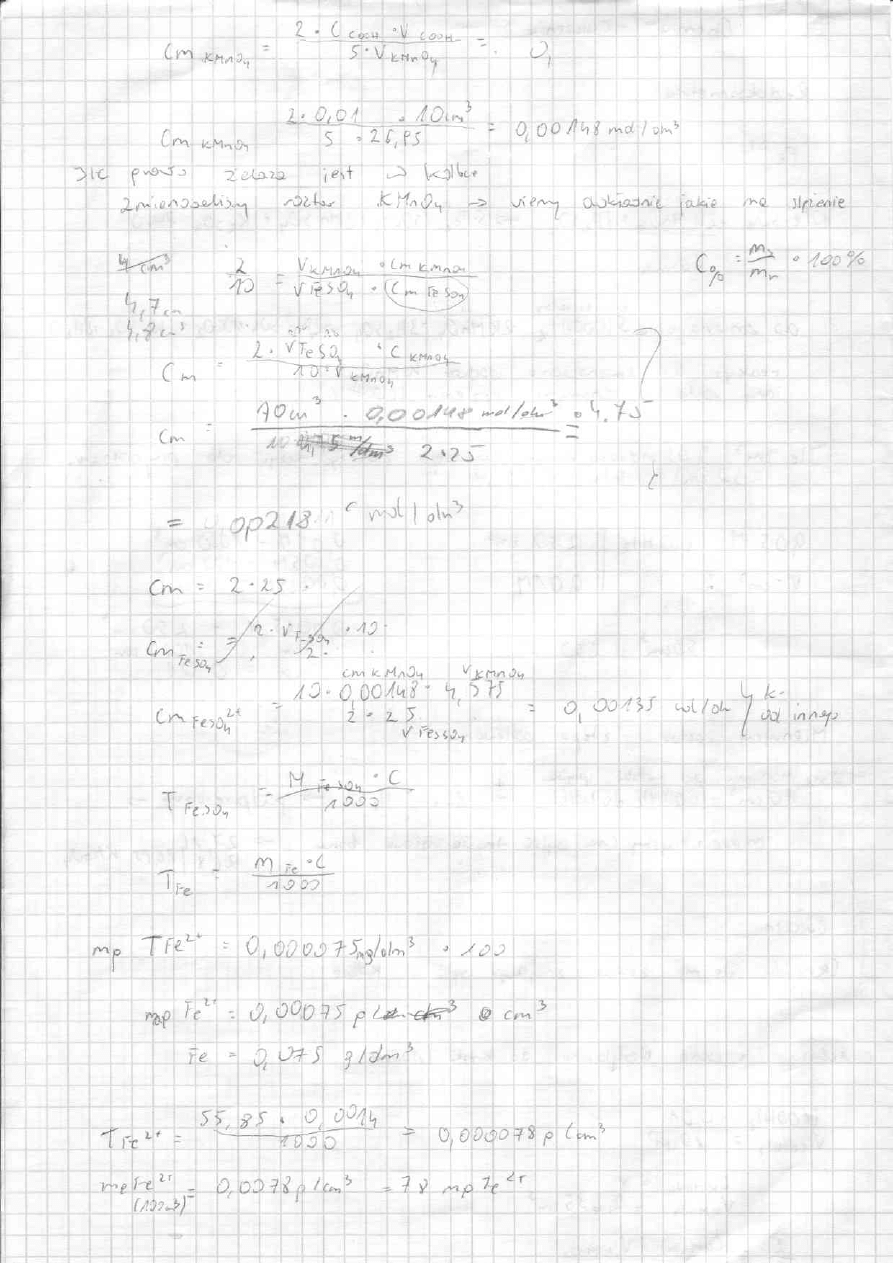 Cm KMnO4 = 2 · C COOH · V COOH / 5 · V KMnO4 = 0,
Cm KMnO4 = 2 · 0,01 · 10cm³ / 5 · 26,95 = 0,00148 mol/dm³
żelaza jest w kolbce
KMnO4 → wiemy dokładnie jakie ma
4 cm³ 2/10 = V KMnO4 · Cm KMnO4 / V FeSO4 · Cm FeSO4 C% = ms/mr · 100%
4,7cm
4,8cm
Cm = 2 · V FeSO4 · C KMnO4 / 10 · V KMnO4 ?
Cm = 10cm³ · 0,00148 mol/dm³ · 4,75 / 2·25 =
= mol/dm³
Cm = 2·25
Cm FeSO4 = 2 · V FeSO4 · 10 / 2·
Cm FeSO4²⁺ = 10 · 0,00148 · 4,575 / 2 · 25 = 0,00135 mol/dm
cm KMnO4 V KMnO4
V FeSO4
od innego
T FeSO4 = M FeSO4 · C / 1000
T Fe = M Fe · C / 1000
mg T Fe²⁺ = 0,000075 mg/dm³ · 100
mg Fe²⁺ = 0,00075 g cm³
Fe = 0,075 g/dm³
T Fe²⁺ = 55,85 · 0,0014 / 1000 = 0,000078 g/cm³
mg Fe²⁺ (100cm³) = 0,0078 g/cm³ = 78 mg Fe²⁺